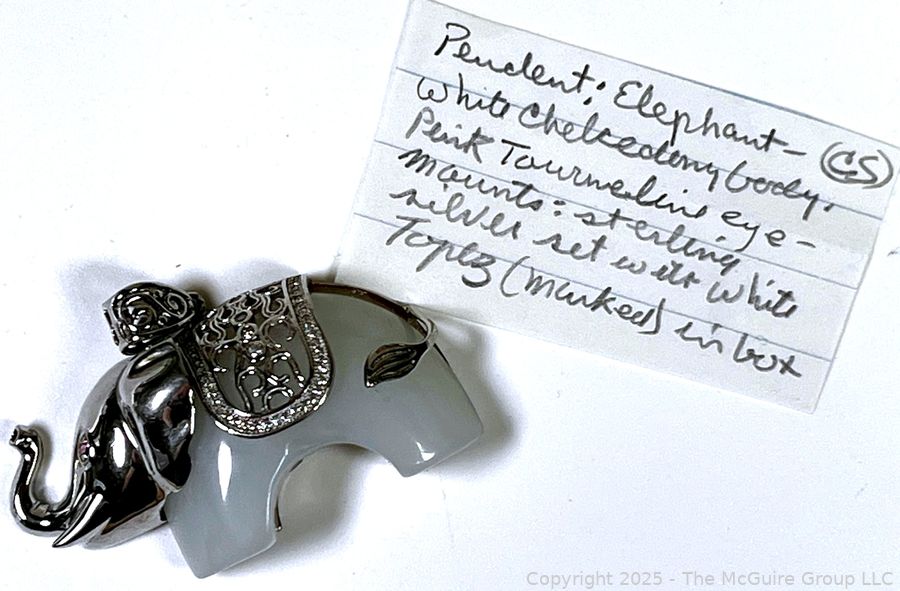 Pendent: Elephant-
White Chelcedony body.
Pink Tourmeline eye-
mounts: sterling
silver set with white
Topaz (marked) in box
CS
Copyright 2025 - The McGuire Group LLC